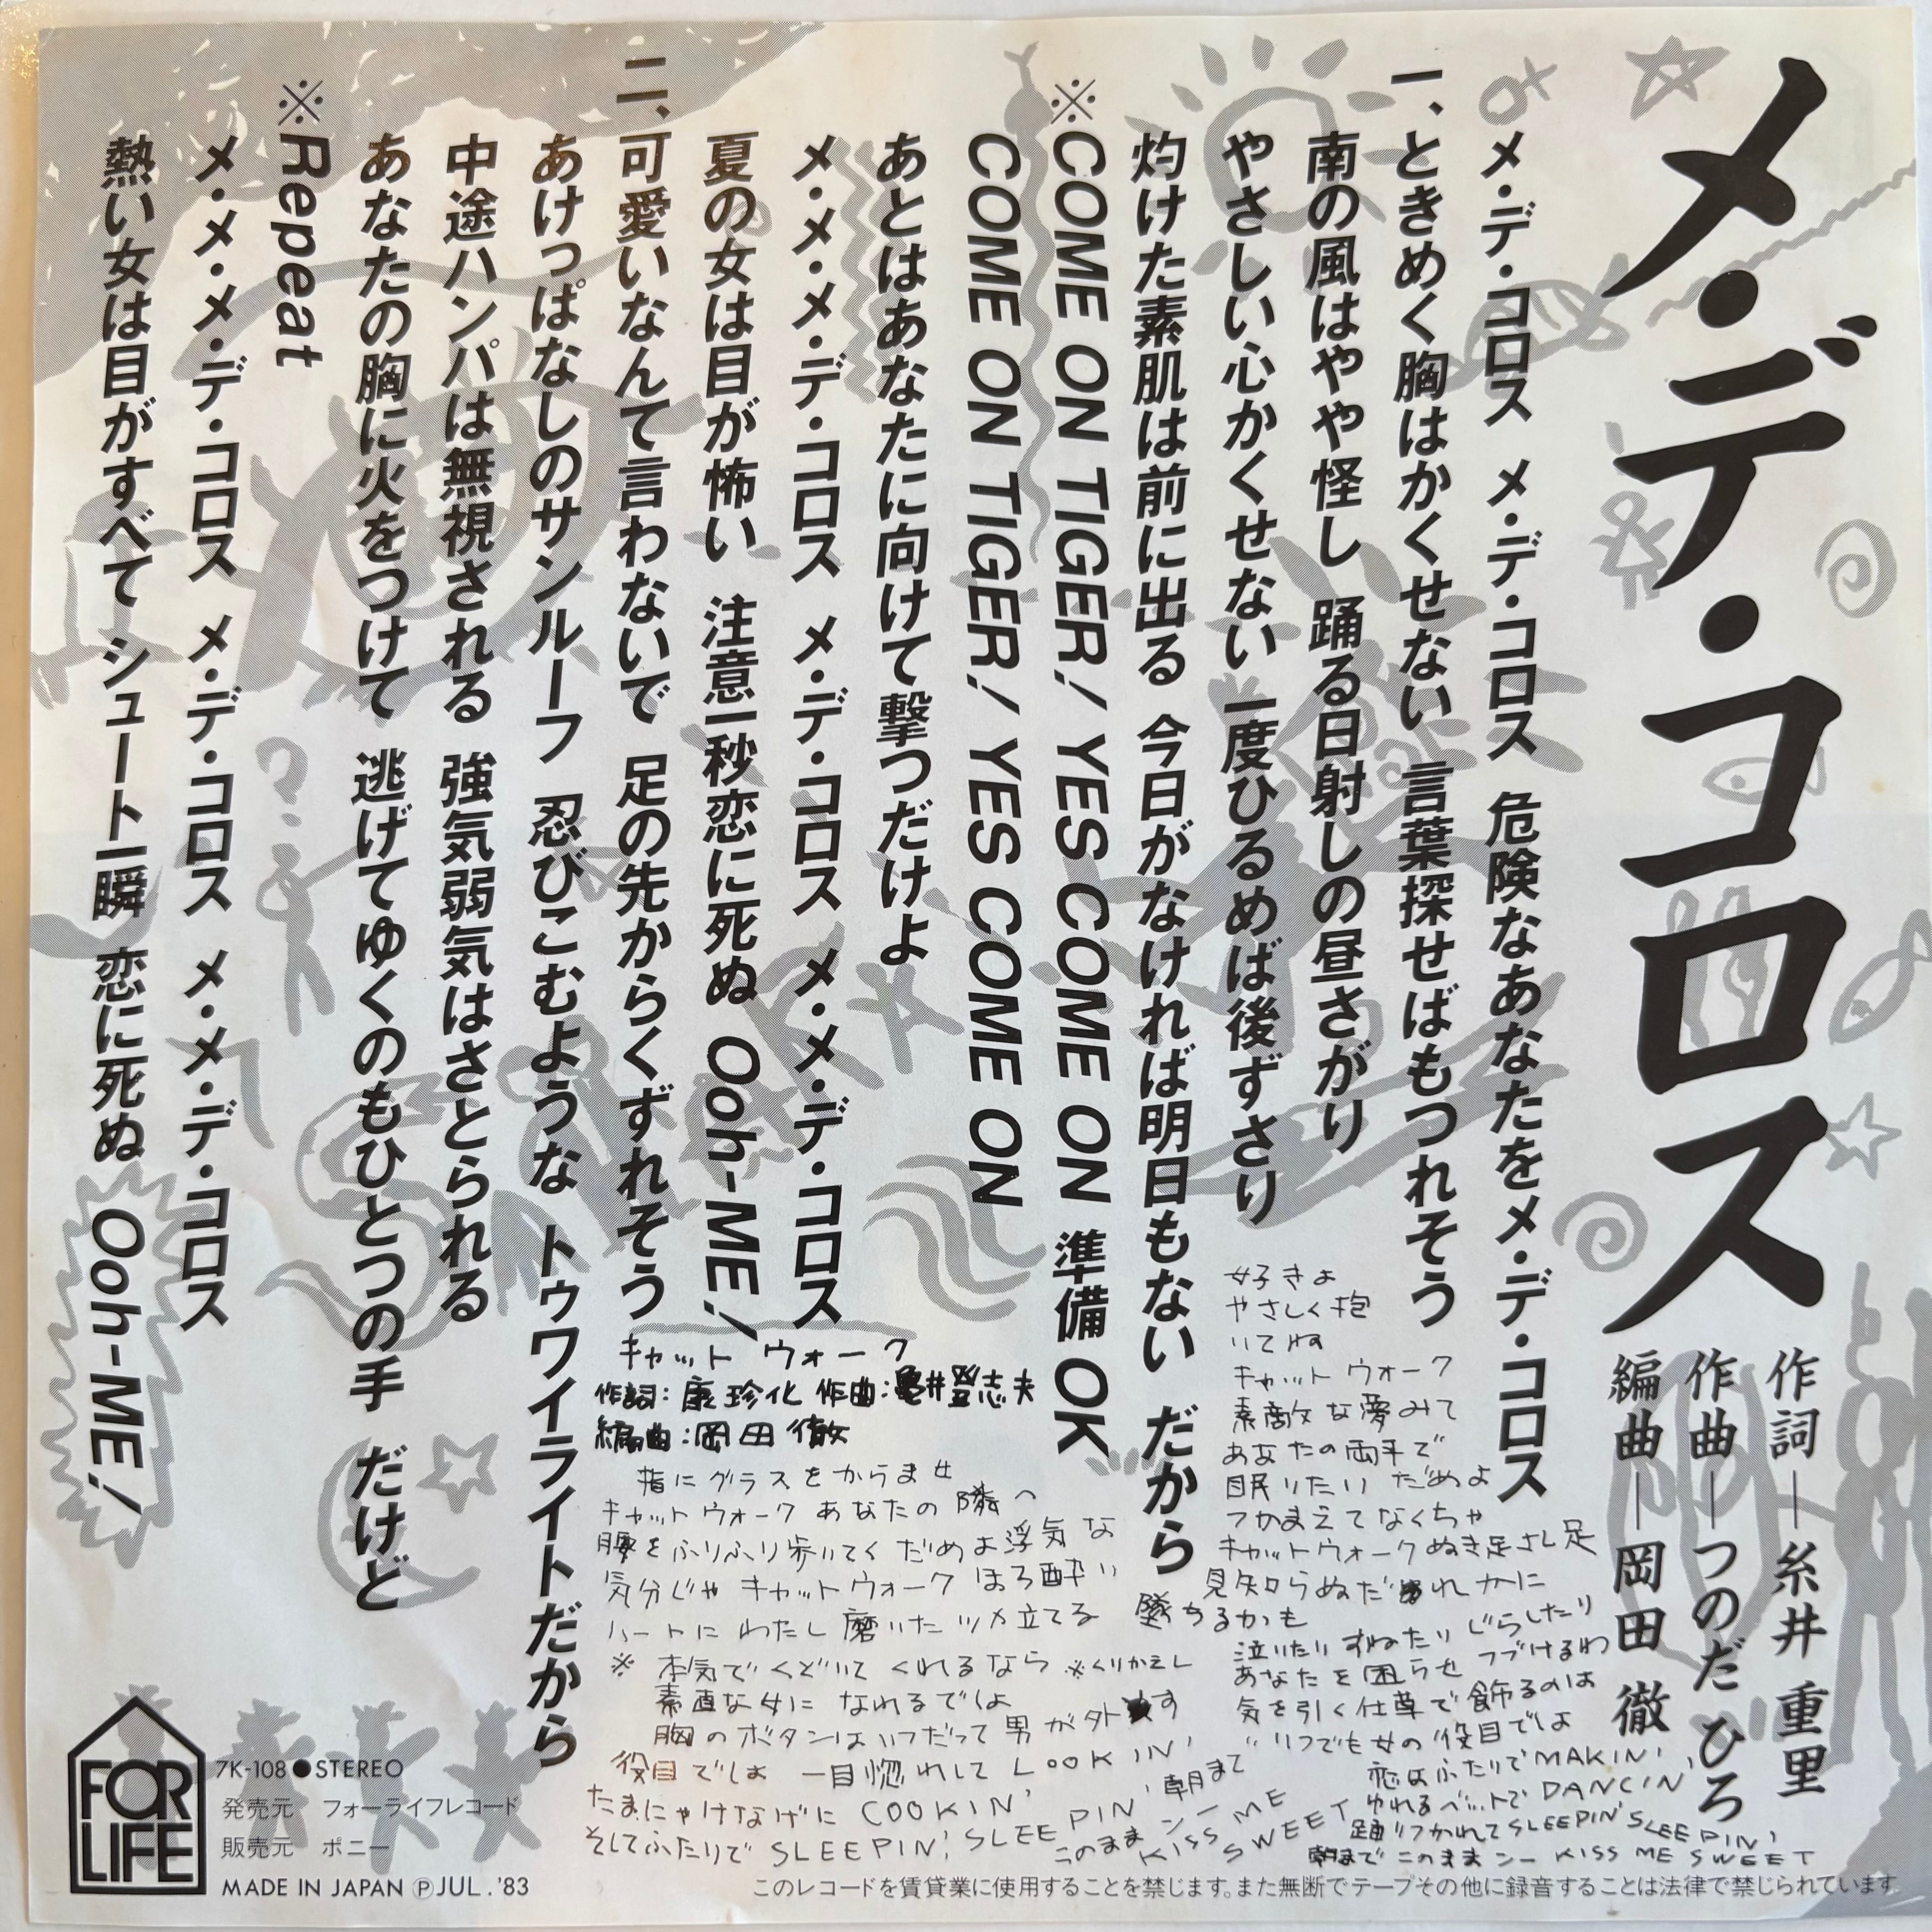 メ・デ・コロス
作詞―糸井 重里
作曲―つのだ ひろ
編曲―岡田 徹
メ・デ・コロス メ・デ・コロス 危険なあなたをメ・デ・コロス
一、ときめく胸はかくせない 言葉探せばもつれそう
南の風はやや怪し 踊る日射しの昼さがり
やさしい心かくせない 一度ひるめば後ずさり
灼けた素肌は前に出る 今日がなければ明日もない だから
※COME ON TIGER! YES COME ON 準備 OK
COME ON TIGER! YES COME ON
あとはあなたに向けて撃つだけよ
メ・メ・メ・デ・コロス メ・デ・コロス メ・メ・デ・コロス
夏の女は目が怖い 注意一秒恋に死ぬ Ooh-ME!
二、可愛いなんて言わないで 足の先からくずれそう
あけっぱなしのサンルーフ 忍びこむような トゥワイライトだから
中途ハンパは無視される 強気弱気はさとられる
あなたの胸に火をつけて 逃げてゆくのもひとつの手 だけど
※Repeat
メ・メ・メ・デ・コロス メ・デ・コロス メ・メ・デ・コロス
熱い女は目がすべて シュート一瞬 恋に死ぬ Ooh-ME!
キャット ウォーク
作詞:康珍化 作曲:亀井登志夫
編曲:岡田徹
指にグラスをからませ
キャットウォーク あなたの隣へ
腰をふりふり歩いてく だめよ浮気な
気分じゃ キャットウォーク ほろ酔い
ハートに わたし磨いたツメ立てる
※ 本気でくどいてくれるなら ※くりかえし
素直な女に なれるでしょ
胸のボタンはいつだって男が外す
役目でしょ 一目惚れして LOOKIN'
たまにゃけなげに COOKIN'
そしてふたりで SLEEPIN', SLEEPIN' 朝まで
このまま ンー KISS ME SWEET
好きよ
やさしく抱
いてね
キャット ウォーク
素敵な夢みて
あなたの両手で
眠りたい だめよ
つかまえてなくちゃ
キャットウォークぬき足さし足
見知らぬだれかに
墜ちるかも
泣いたり すねたり じらしたり
あなたを困らせ つづけるわ
気を引く仕草で飾るのは
いつでも女の役目でしょ
恋はふたりで MAKIN'
ゆれるベットで DANCIN'
踊りつかれて SLEEPIN' SLEEPIN'
朝まで このまま ンー KISS ME SWEET
FOR LIFE
7K-108●STEREO
発売元 フォーライフレコード
販売元 ポニー
MADE IN JAPAN ⓅJUL.'83
このレコードを賃貸業に使用することを禁じます。また無断でテープその他に録音することは法律で禁じられています。